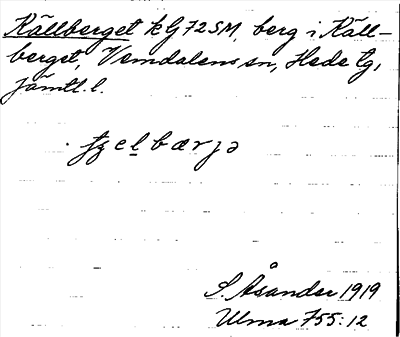 Källberget k G72SM, berg i Käll-
berget, Vemdalens sn, Hede tg,
Jämtl. l.
S. Åsander 1919
Ulma 755:12